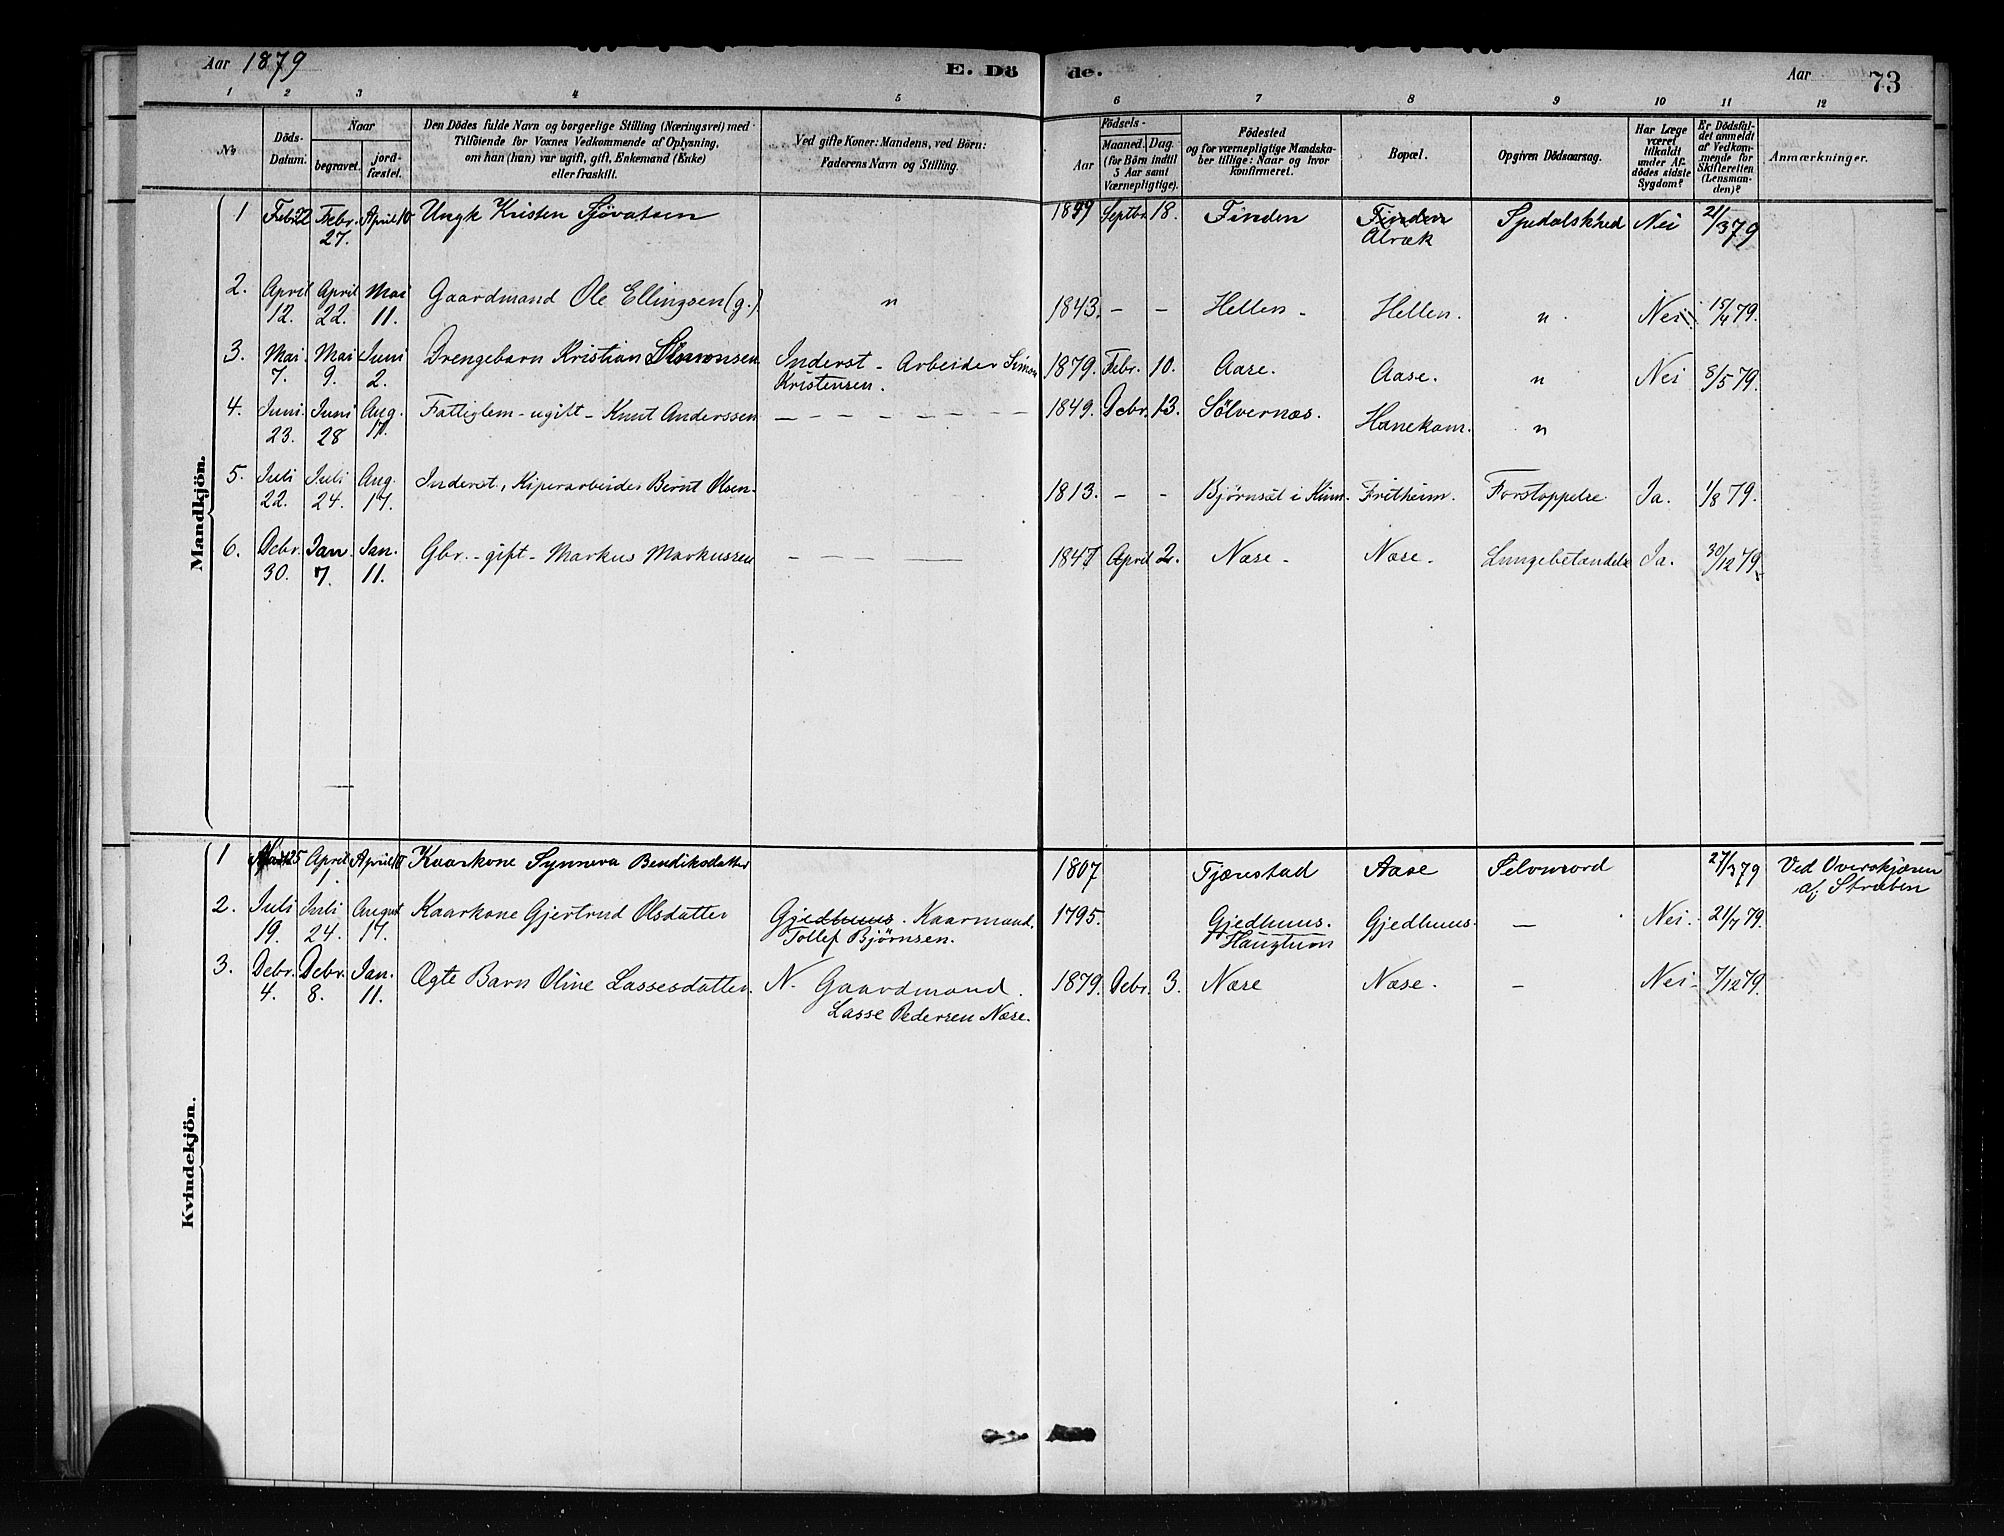 Aar 1879
E. Dö de.
Aar 73
1 2 3 4 5 6 7 8 9 10 11 12
No
Döds-Datum.
Naar
begravet.
jord-fæstet.
Den Dödes fulde Navn og borgerlige Stilling (Næringsvei) med
Tilföiende for Voxnes Vedkommende af Oplysning,
om han (han) var ugift, gift, Enkemand (Enke)
eller fraskilt.
Ved gifte Koner: Mandens, ved Börn:
Faderens Navn og Stilling.
Födsels-
Aar
Maaned. (for Börn indtil 5 Aar samt Værnepligtige).
Dag.
Födested
og for værnepligtige Mandska-
ber tillige: Naar og hvor
konfirmeret.
Bopæl.
Opgiven Dödsaarsag.
Har Læge været tilkaldt under Afdödes sidste Sygdom?
Er Dödsfaldet anmeldt af Vedkommende for Skifteretten (Lensmanden)?
Anmærkninger.
Mandkjön.
1 Febr 22 Febr. 27. April 10 Ungk Kristen Sjøvatsen 1839 Septbr. 18. Finden Finden Alræk Spedalskhed Nei 21/3 79
2. April 12. April 22. Mai 11. Gaardmand Ole Ellingsen (g.) " 1843. – – Hellen – Hellen. " Nei 15/4 79.
3. Mai 7. Mai 9. Juni 2. Drengebarn Kristian Simonsen Inderst – Arbeider Simon Kristensen. 1879. Febr. 10. Aase. Aase. " Nei 8/5 79.
4. Juni 23. Juni 28 Aug. 17. Fattiglem – ugift – Knut Anderssen – – – – – – 1849. Debr. 13. Sölvernæs. Hanekam. "
5. Juli 22. Juli 24. Aug. 17. Inderst, Kiperarbeider Bernt Olsen – 1813. – – Bjørnsæt i Kinn – Fritheim. Forstoppelse Ja. 1/8 79.
6. Debr. 30. Jan. 7. Jan. 11. Gbr. – gift – Markus Markussen – – – – – 1847 April 2. Næse – Næse – Lungebetændelse Ja. 30/12 79.
Kvindekjön.
1 Marts 25 April 1. April 10 Kaarkone Synneva Bendiksdatter 1807 Tjønstad Aase Selvmord 27/3 79 Ved Overskjæren af Struben
2. Juli 19. Juli 24. August 17. Kaarkone Gjertrud Olsdatter Gjedhuus. Kaarmand. Tollef Bjørnsen. 1795. Gjedhuus. Haugtun Gjedhuus – – Nei – 21/7 79.
3. Debr. 4. Debr. 8. Jan. 11. Ægte Barn Oline Lassesdatter. N. Gaardmand. Lasse Pedersen Næse. 1879. Debr. 3. Næse Næse. – Nei – 7/12 79.